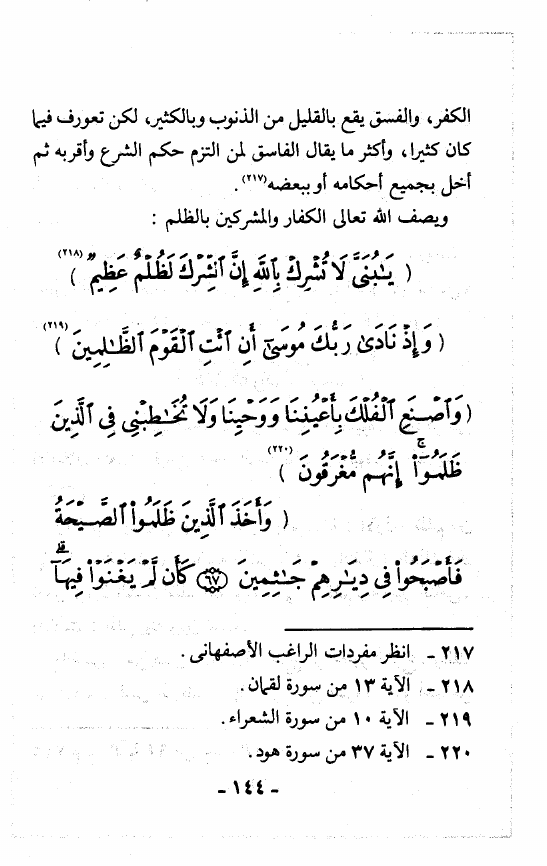 الكفر، والفسق يقع بالقليل من الذنوب وبالكثير، لكن تعورف فيما
كان كثيرا، وأكثر ما يقال الفاسق لمن التزم حكم الشرع وأقربه ثم
أخل بجميع أحكامه أو ببعضه(٢١٧).
ويصف الله تعالى الكفار والمشركين بالظلم :
( يَـٰبُنَىَّ لَا تُشْرِكْ بِٱللَّهِ إِنَّ ٱلشِّرْكَ لَظُلْمٌ عَظِيمٌ(٢١٨) )
( وَإِذْ نَادَىٰ رَبُّكَ مُوسَىٰٓ أَنِ ٱئْتِ ٱلْقَوْمَ ٱلظَّـٰلِمِينَ(٢١٩) )
( وَٱصْنَعِ ٱلْفُلْكَ بِأَعْيُنِنَا وَوَحْيِنَا وَلَا تُخَـٰطِبْنِى فِى ٱلَّذِينَ
ظَلَمُوٓا۟ ۚ إِنَّهُم مُّغْرَقُونَ(٢٢٠) )
( وَأَخَذَ ٱلَّذِينَ ظَلَمُوا۟ ٱلصَّيْحَةُ
فَأَصْبَحُوا۟ فِى دِيَـٰرِهِمْ جَـٰثِمِينَ ۝٦٧ كَأَن لَّمْ يَغْنَوْا۟ فِيهَآ ۗ
٢١٧ - انظر مفردات الراغب الأصفهانى .
٢١٨ - الآية ١٣ من سورة لقمان .
٢١٩ - الآية ١٠ من سورة الشعراء .
٢٢٠ - الآية ٣٧ من سورة هود .
- ١٤٤ -